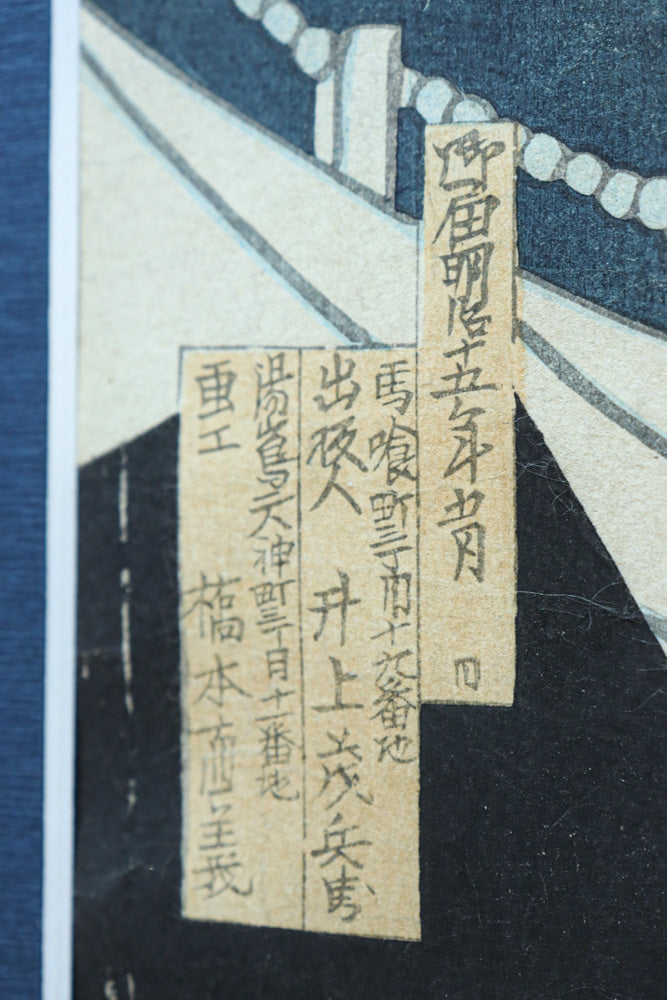 御届明治十五年 月 日
馬喰町三丁目十九番地
出版人 井上茂兵衛
湯島天神町三丁目十一番地
画工 橋本直義